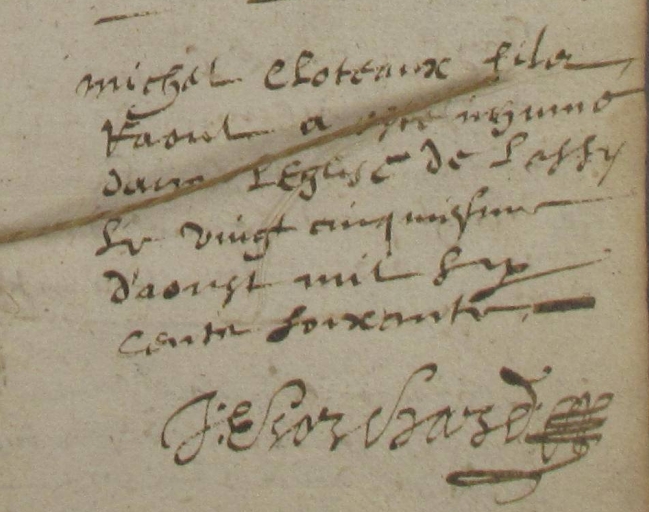 michel Cloteaux filz
Raoul a esté inhumé
dans l'Eglise de Lassy
le vingt cinquiesme
d'aoust mil six
cents soixante